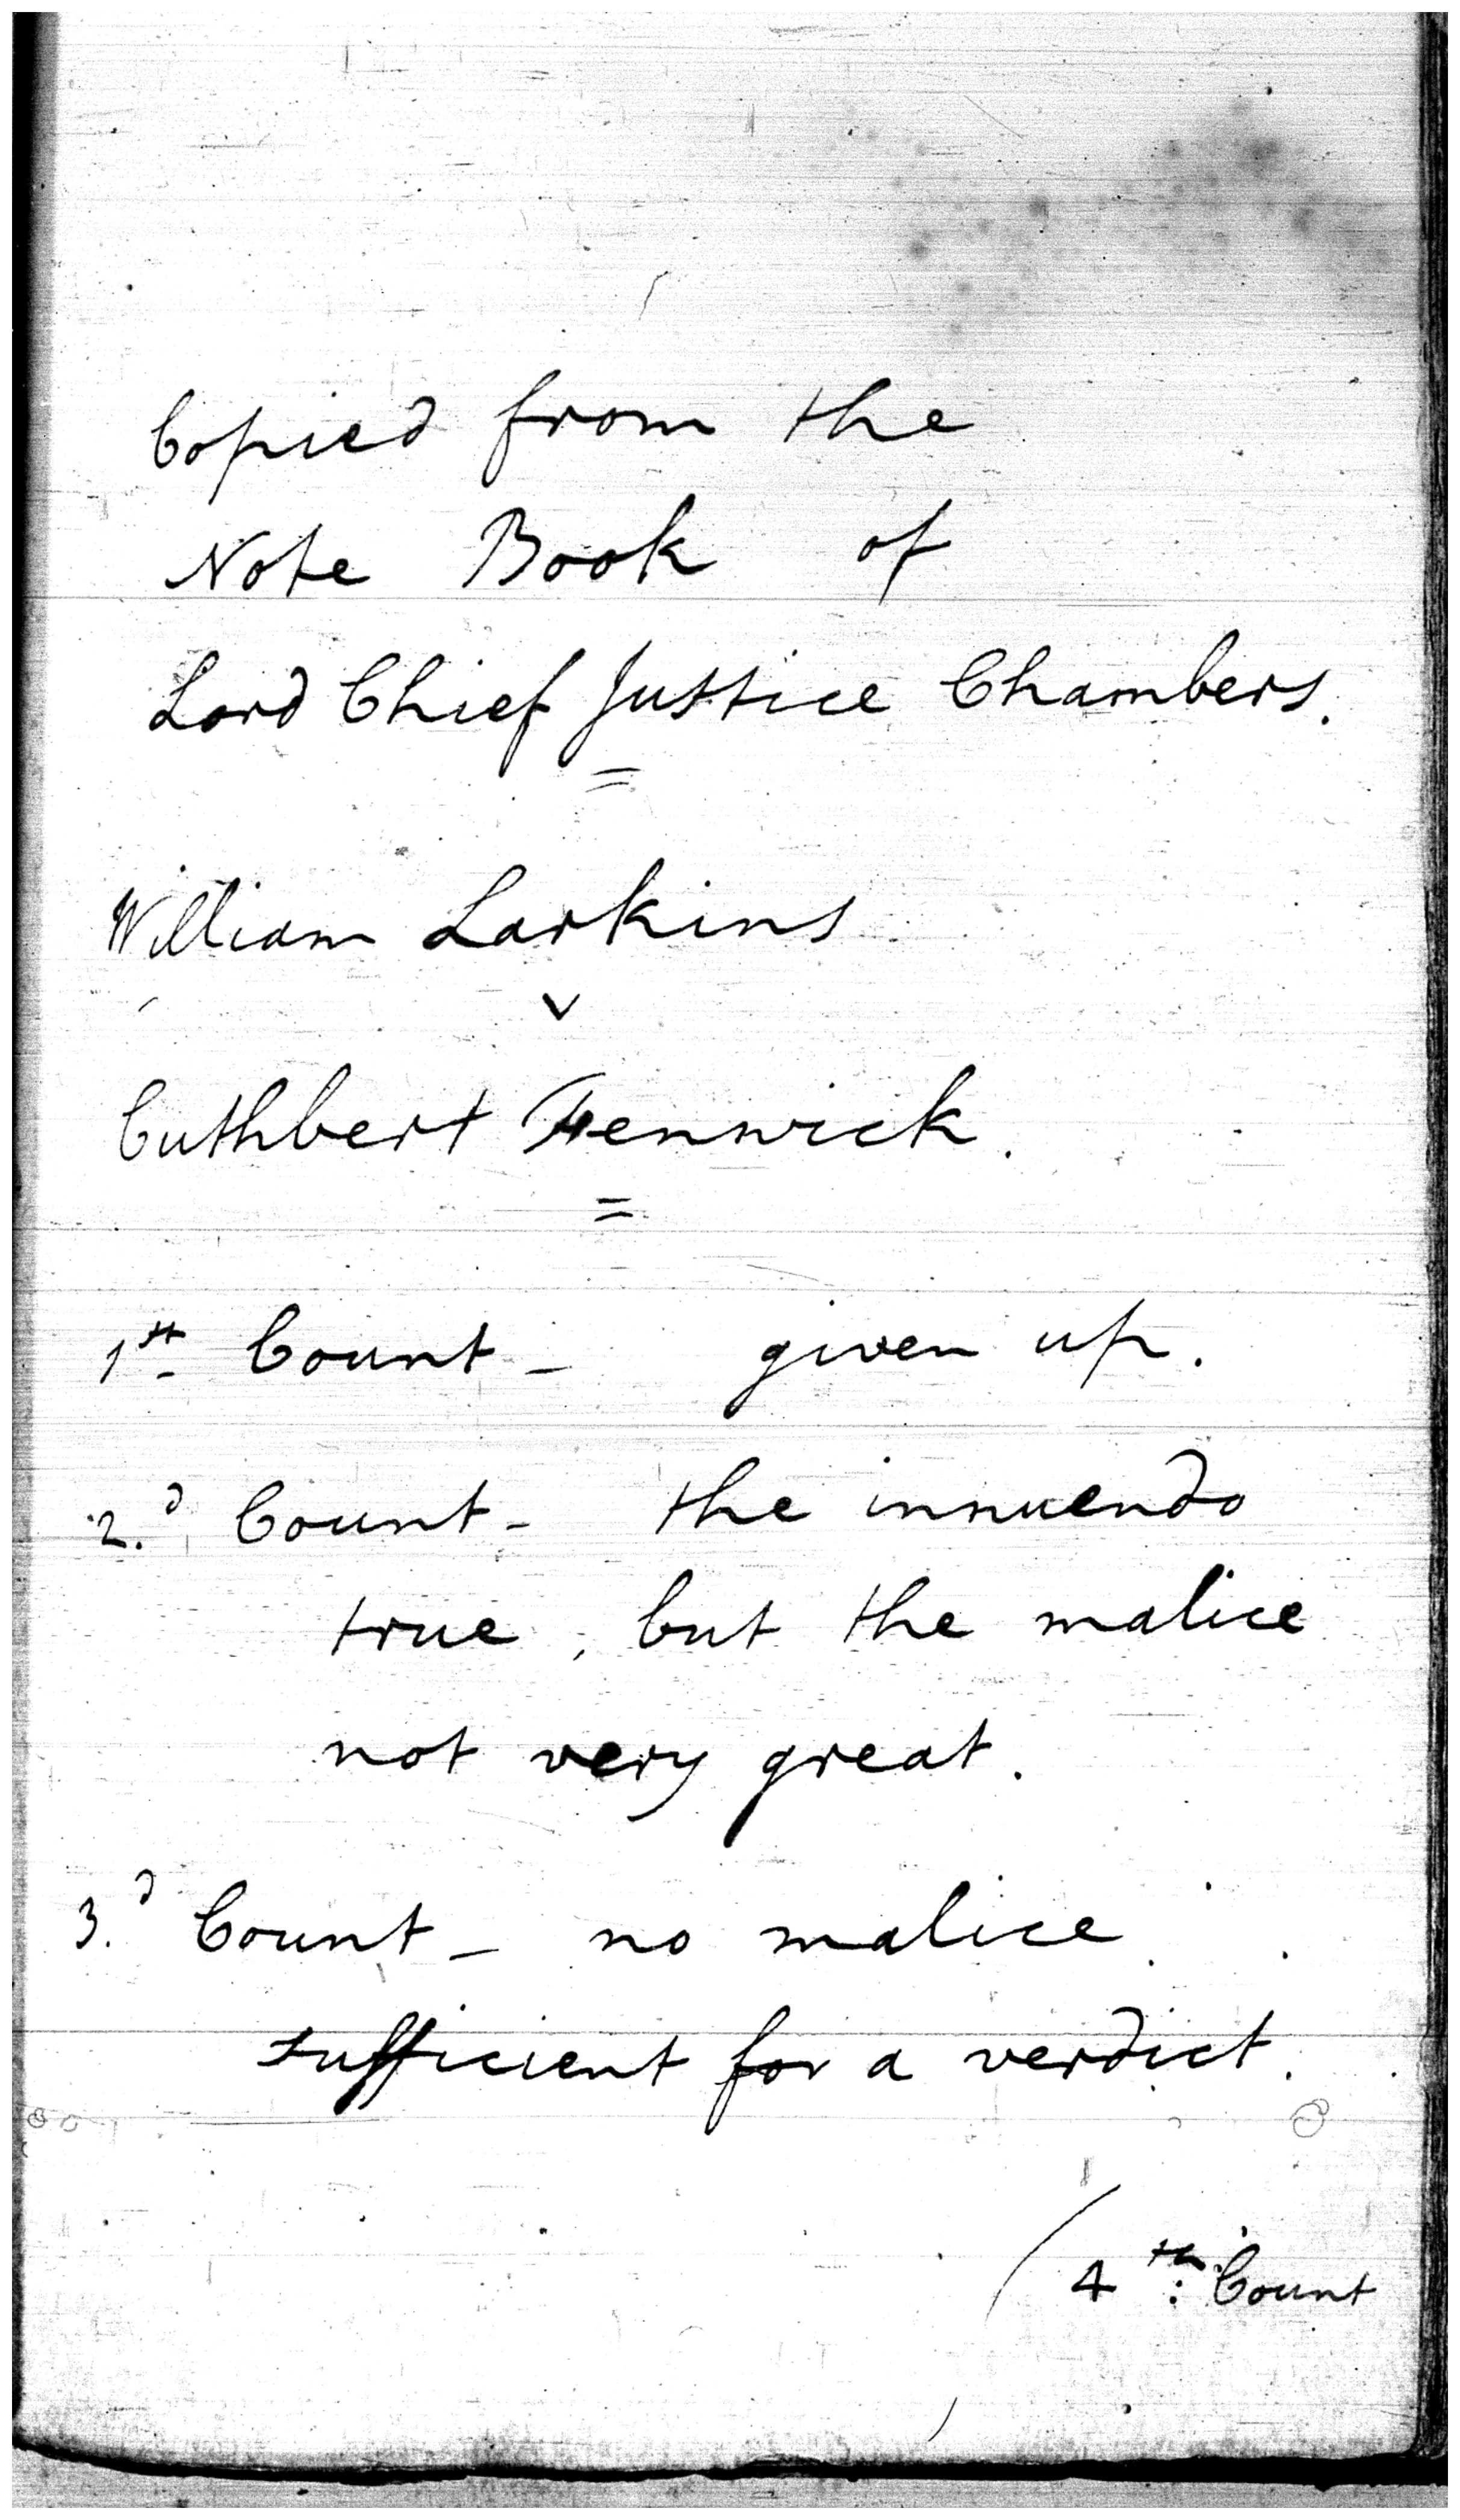 Copied from the
Note Book of
Lord Chief Justice Chambers.
=
William Larkins
v
Cuthbert Fenwick.
=
1st Count – given up.
2.d Count – the innuendo
true, but the malice
not very great.
3.d Count – no malice
sufficient for a verdict.
(4th: Count